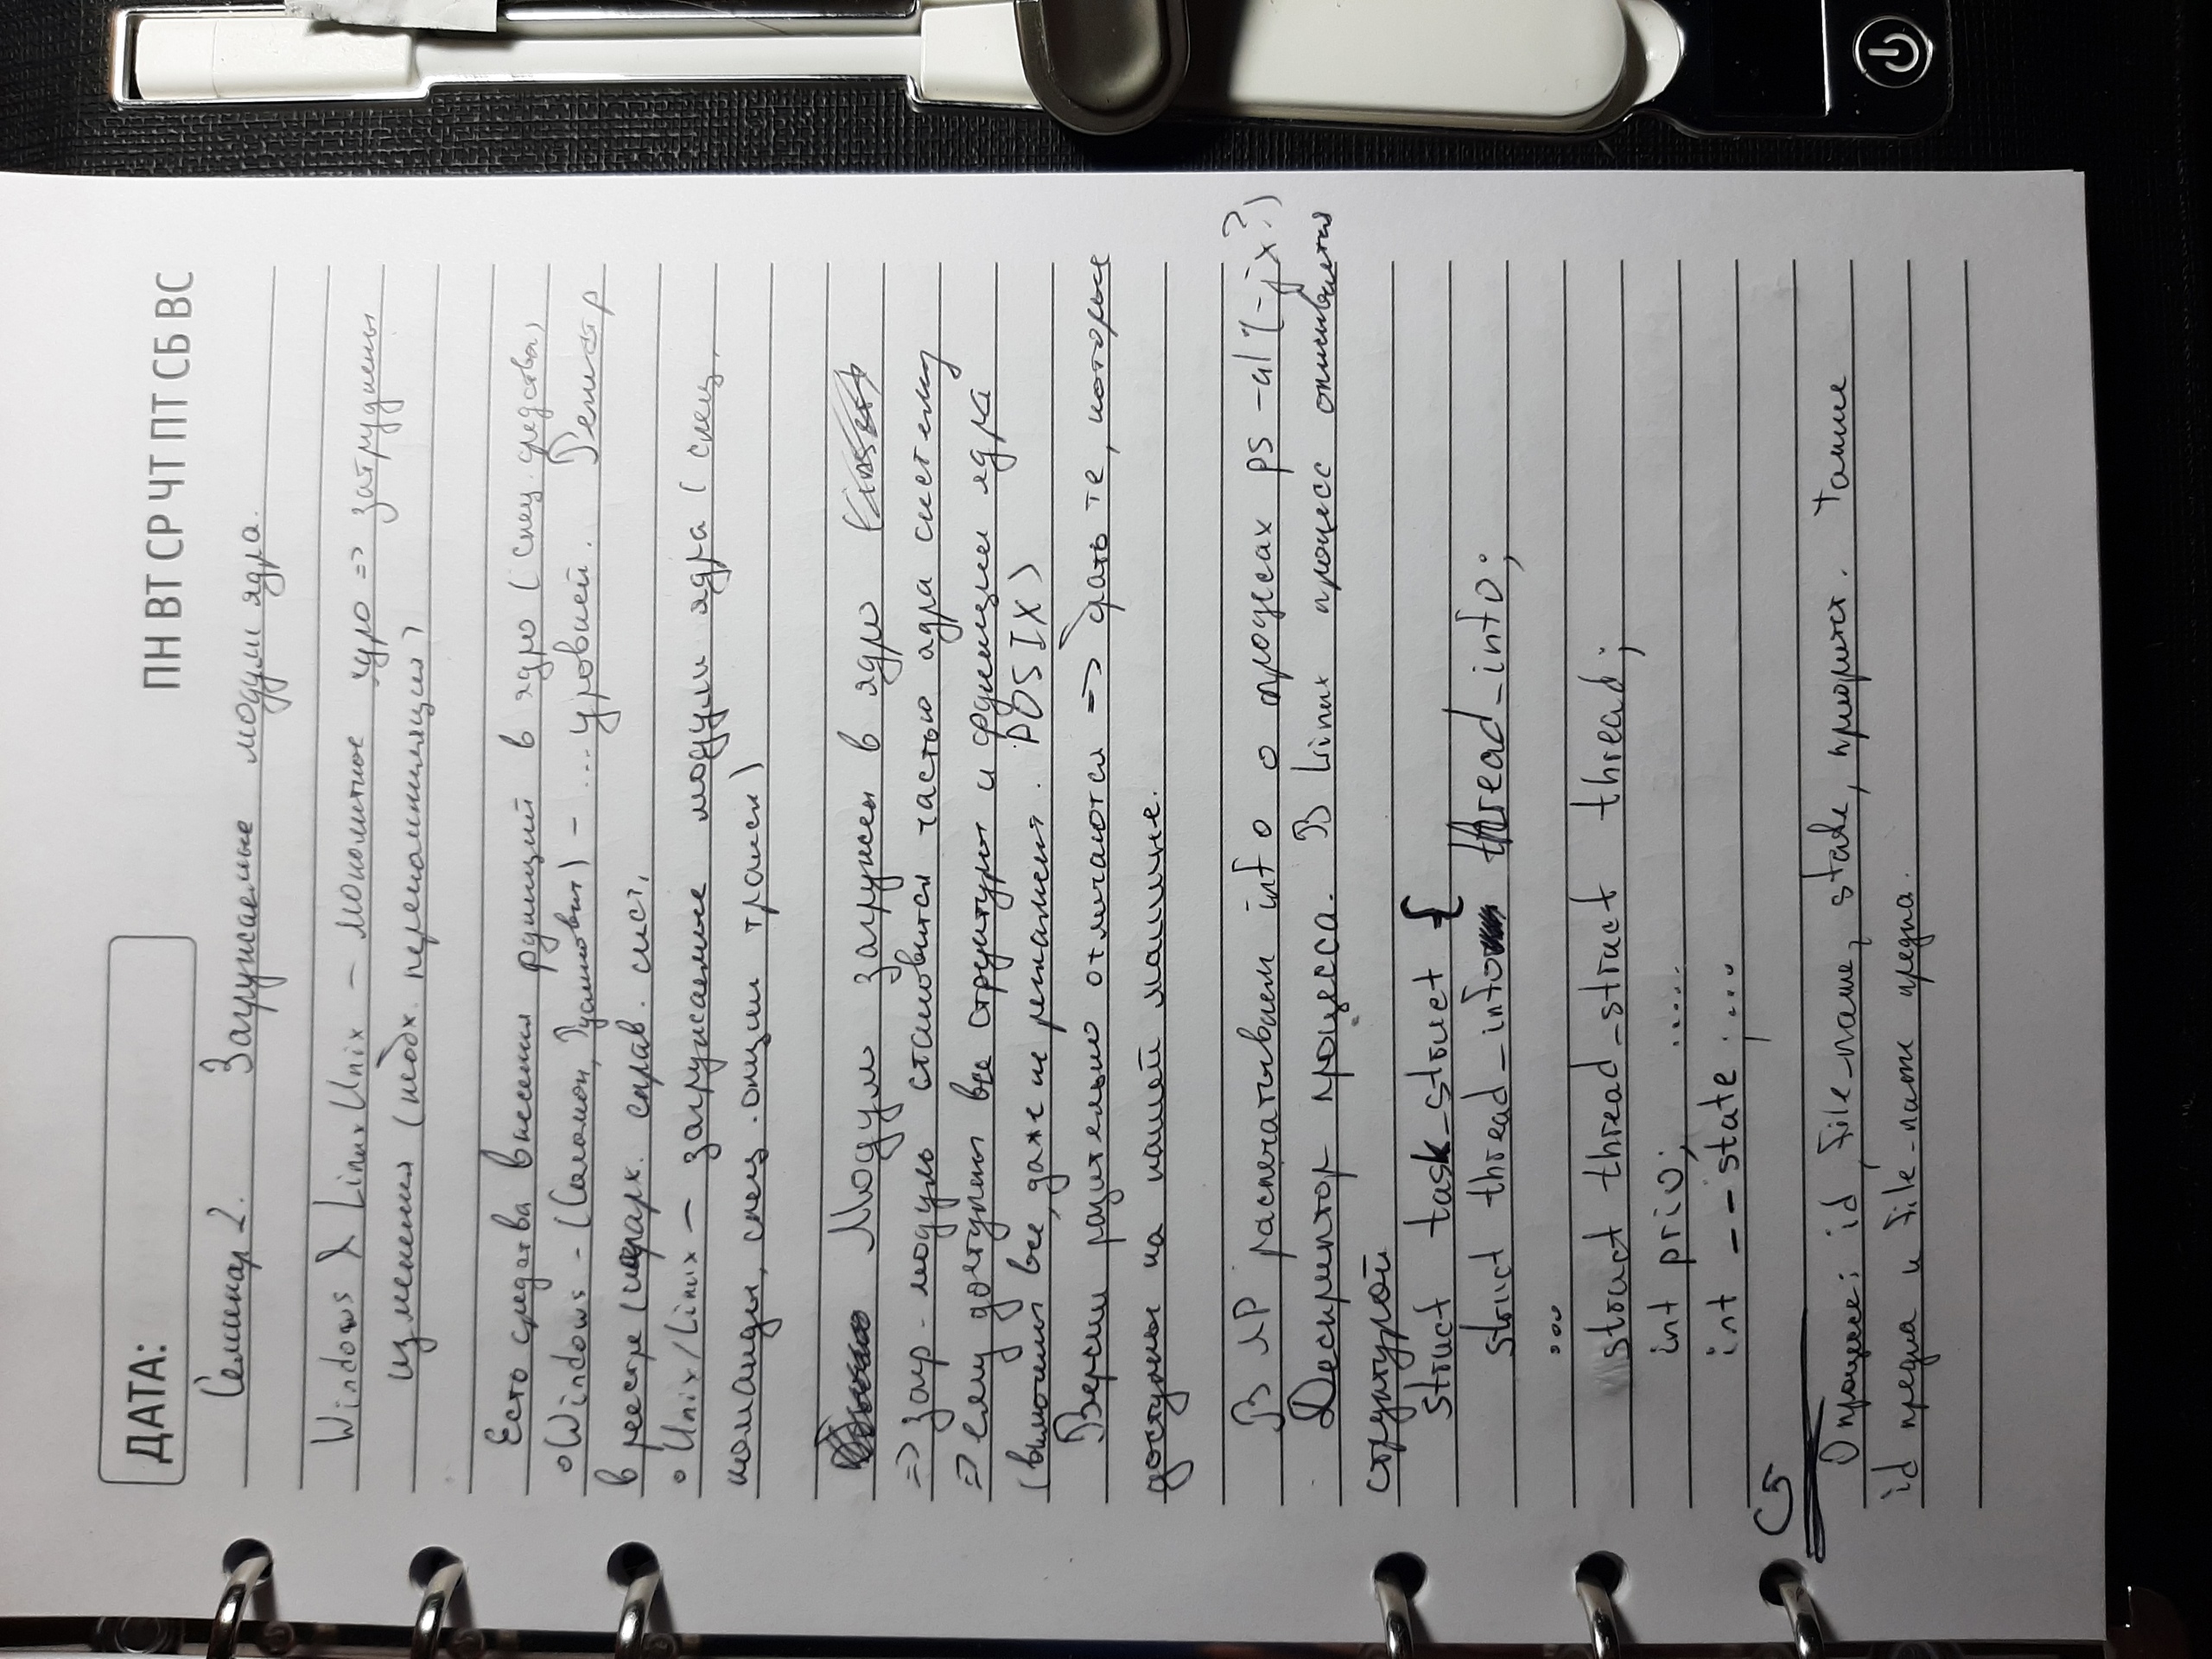 ДАТА:
ПН ВТ СР ЧТ ПТ СБ ВС
Семинар 2. Загружаемые модули ядра.
Windows & Linux, Unix – монолитное ядро => затруднены
изменения (необх. перекомпиляция)
Есть средства внесения функций в ядро (спец. средства)
• Windows - (Соломон, Руссинович) - ... уровней.
в реестре (иерарх. справ. сист.
• Unix/Linux – загружаемые модули ядра (спец.
команды, спец. опции трансл)
Модули загружен в ядро
=> загр. модуль становится частью ядра систему
=> ему доступны все структуры и функции ядра
(включены все, даже не регламент. POSIX)
Версии разительно отличаются => брать те, которые
доступны на нашей машине.
В ЛР распечатываем info о процесах ps -al (-jx?)
Дескриптор процесса. В Linux процесс описывается
структурой
struct task_struct {
struct thread_info thread_info;
...
struct thread_struct thread;
int prio; .....
int __state ....
}
О процессе: id, file-name, state, приорит. также
id предка и file-name предка.